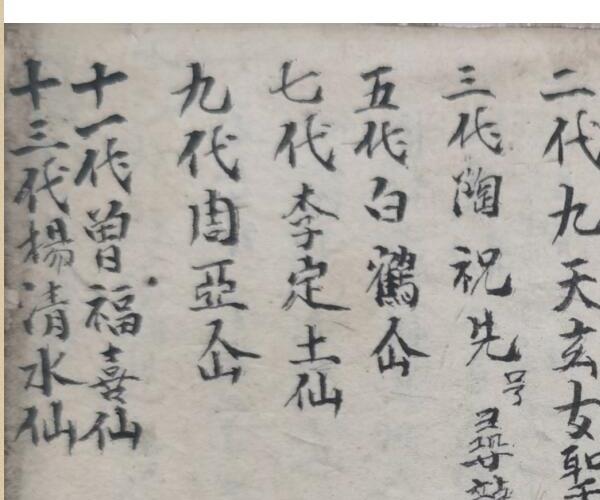 二代九天玄女
三代陶祝先号
五代白鶴仚
七代李定土仙
九代周亞仚
十一代曾福喜仙
十三代楊清水仙